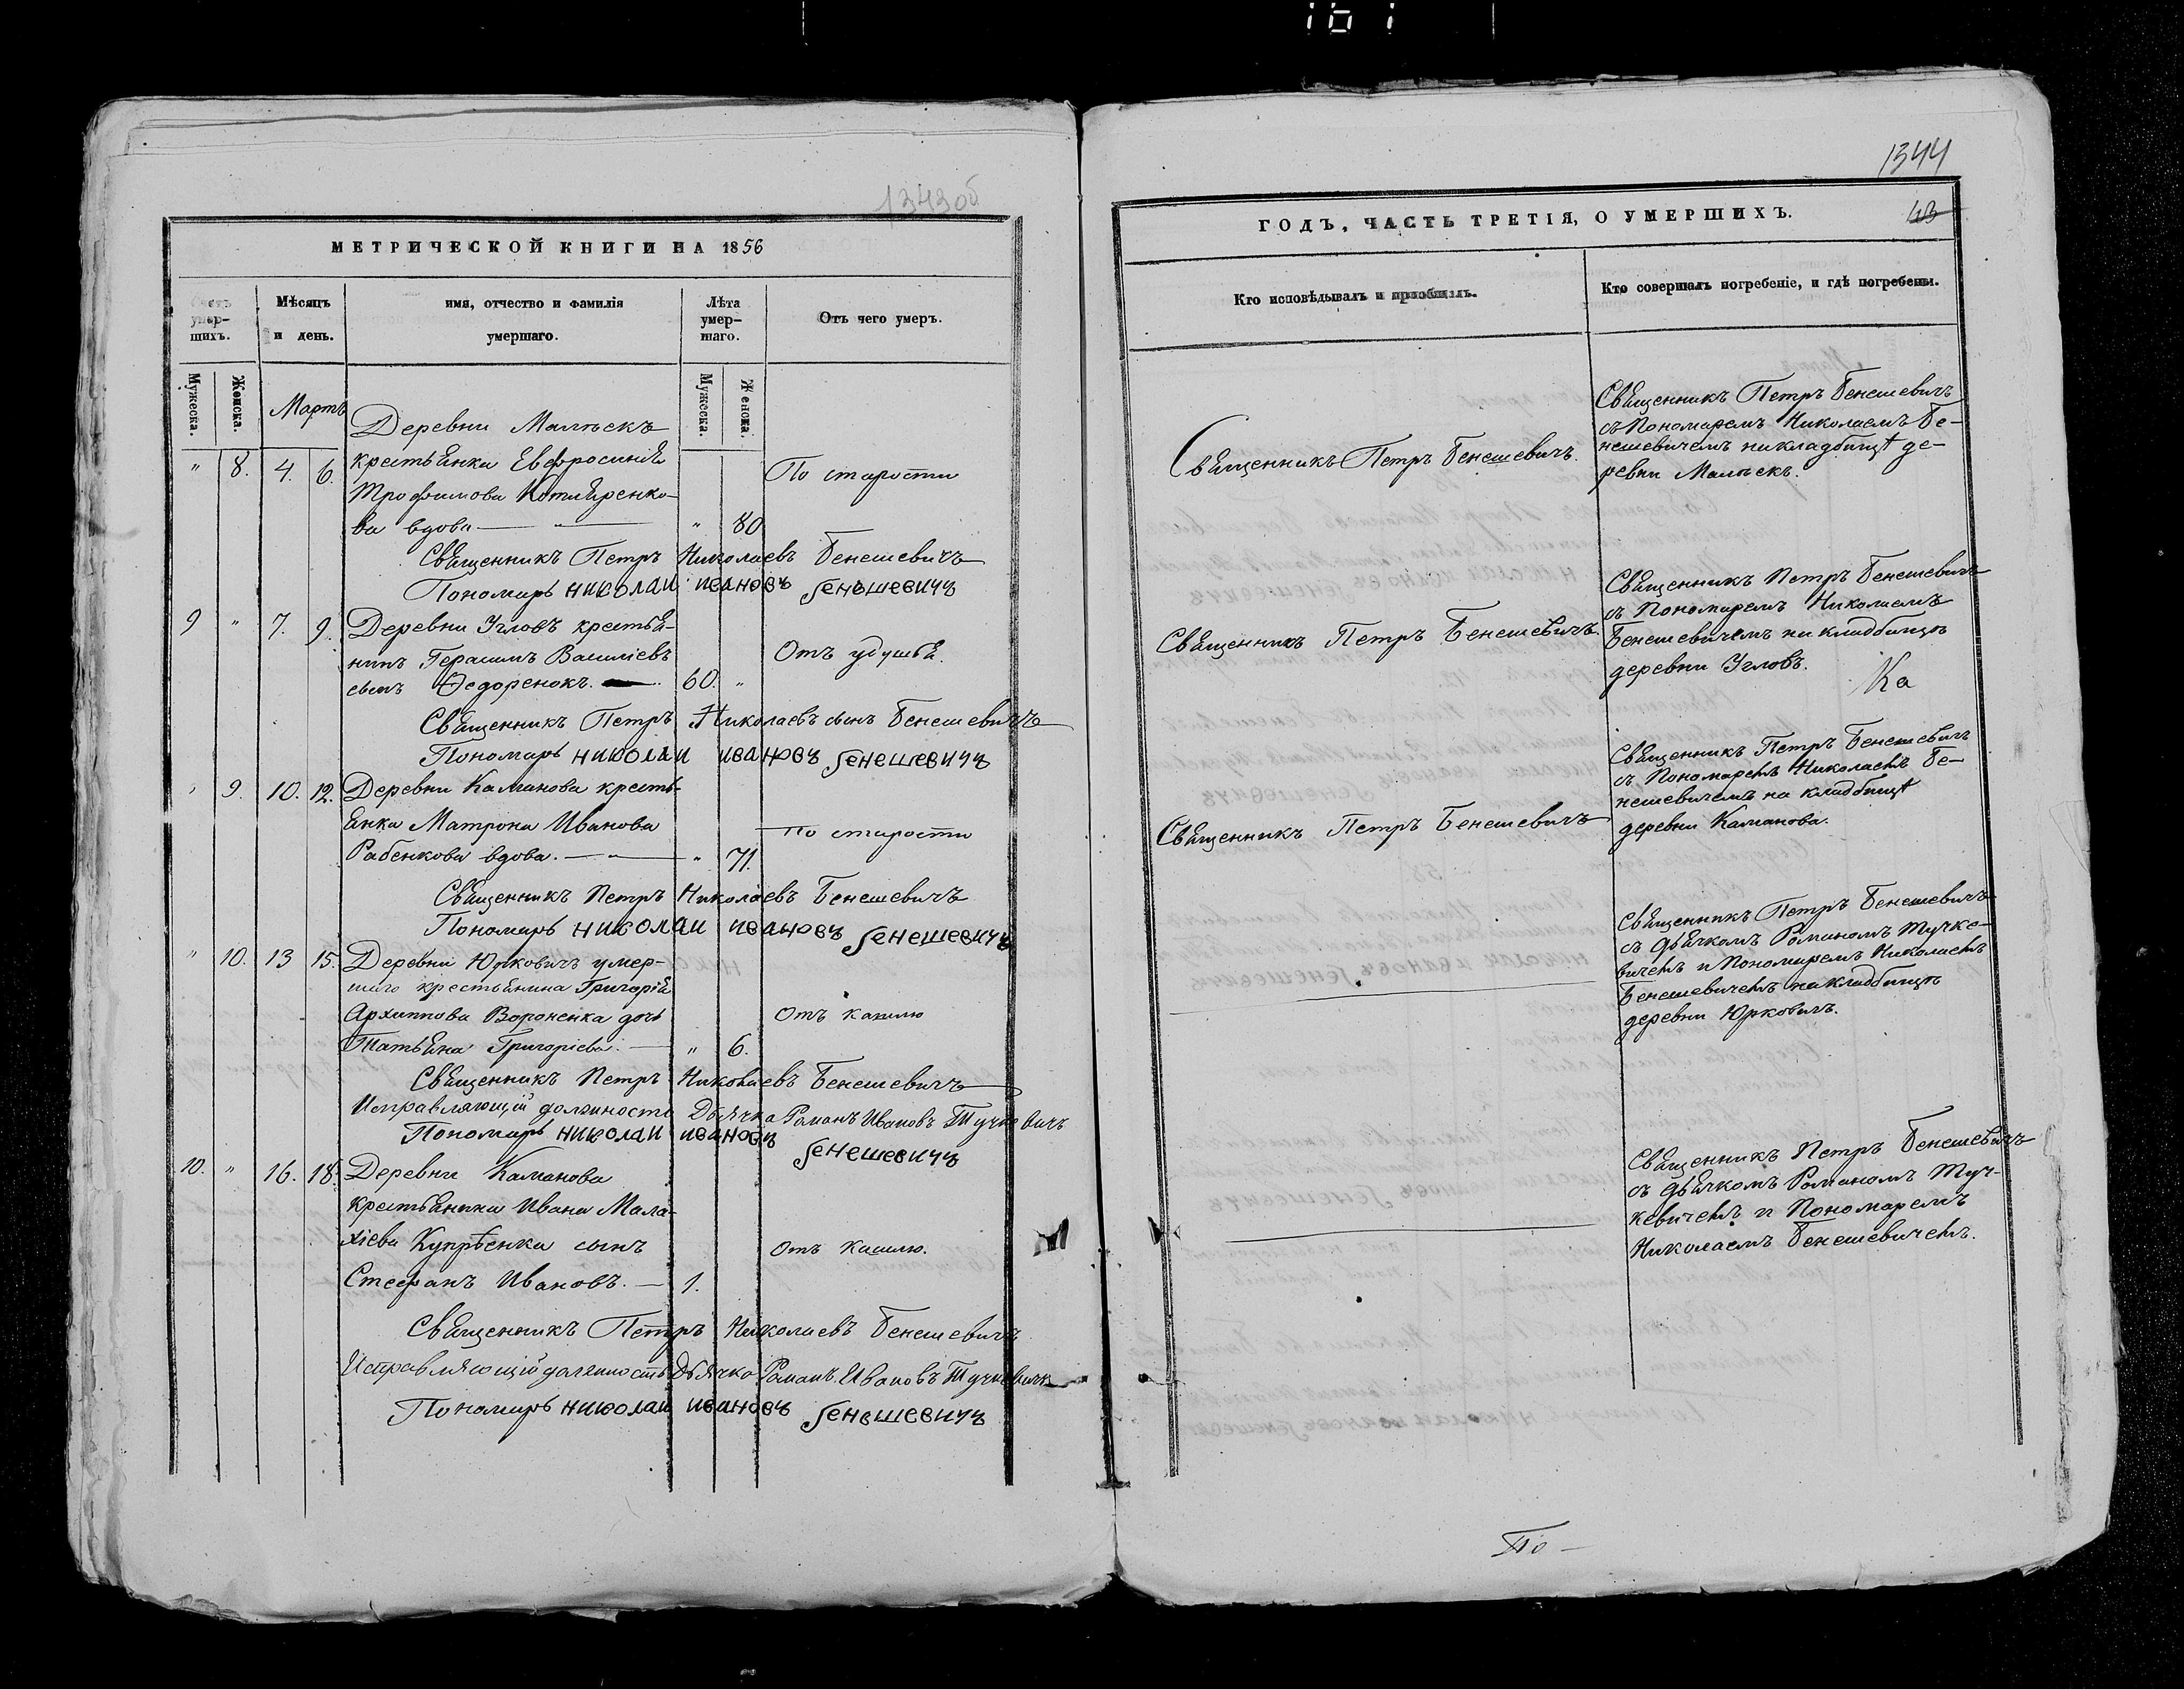 1343об
МЕТРИЧЕСКОЙ КНИГИ НА 1856
Счетъ умер-шихъ.
Мѣсяцъ и день.
имя, отчество и фамилія умершаго.
Лѣта умер-шаго.
Отъ чего умеръ.
Мужеска.
Женска.
Мужеска.
Женска.
Мартъ
Деревни Малѣекъ
" 8. 4. 6. крестьянка Евфросинія По старости
Трофимова
ва вдова — " — " 80
Священникъ Петръ Николаевъ Бенешевичъ
Пономарь николаи ивановъ беньшевичъ
9 " 7. 9. Деревни Угловъ крестья-
нинъ Герасимъ Василіевъ Отъ удушья.
сынъ Ѳедоренокъ. — 60. "
Священникъ Петръ Николаевъ сынъ Бенешевичъ
Пономарь николаи ивановъ бенешевичъ
" 9. 10. 12. Деревни Каманова кресть-
янка Матрона Иванова По старости
Рабенкова вдова. — " — " 71.
Священникъ Петръ Николаевъ Бенешевичъ
Пономарь николаи ивановъ бенешевичъ
" 10. 13 15. Деревни Юрковичъ умер-
шаго крестьянина Григорія
Архипова Вороненка дочь Отъ кашлю
Татьяна Григоріева. — " 6.
Священникъ Петръ Николаевъ Бенешевичъ
Исправляющій должность Дьячка Романъ Ивановъ Тучкевичъ
Пономарь николаи ивановъ
бенешевичъ
10. " 16. 18. Деревни Каманова
крестьянина Ивана Мала-
хіева Купрѣенка сынъ Отъ кашлю.
Стефанъ Ивановъ. — 1.
Священникъ Петръ Николаевъ Бенешевичъ
Исправляющій должность Дьячка Романъ Ивановъ Тучкевичъ
Пономарь николаи ивановъ беньшевичъ
1344
43
ГОДЪ, ЧАСТЬ ТРЕТІЯ, О УМЕРШИХЪ.
Кто исповѣдывалъ и пріобщалъ.
Кто совершалъ погребеніе, и гдѣ погребены.
Священникъ Петръ Бенешевичъ.
Священникъ Петръ Бенешевичъ
съ Пономаремъ Николаемъ Бе-
нешевичемъ на кладбищѣ де-
ревни Малѣекъ.
Священникъ Петръ Бенешевичъ.
Священникъ Петръ Бенешевичъ
съ Пономаремъ Николаемъ
Бенешевичемъ на кладбищѣ
деревни Угловъ.
Ка
Священникъ Петръ Бенешевичъ
Священникъ Петръ Бенешевичъ
съ Пономаремъ Николаемъ Бе-
нешевичемъ на кладбищѣ
деревни Каманова.
Священникъ Петръ Бенешевичъ
съ дьячкомъ Романомъ Тучке-
вичемъ и Пономаремъ Николаемъ
Бенешевичемъ на кладбищѣ
деревни Юрковичъ.
Священникъ Петръ Бенешевичъ
съ дьячкомъ Романомъ Туч-
кевичемъ и Пономаремъ
Николаемъ Бенешевичемъ.
По —